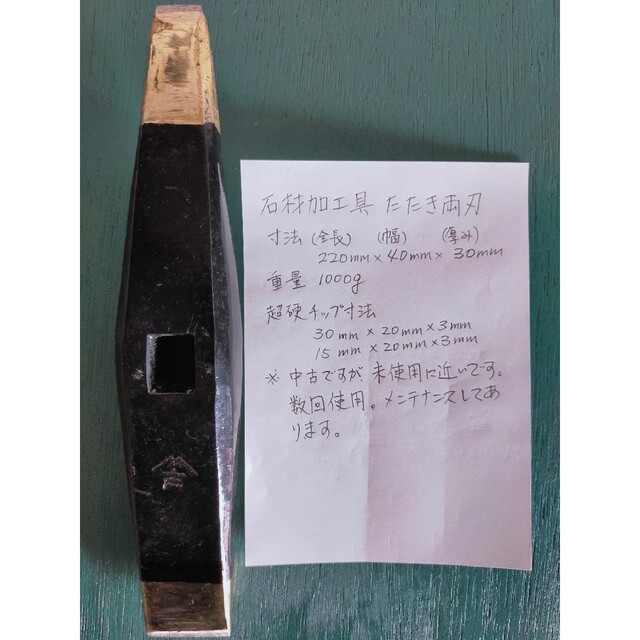 石材加工具 たたき両刃
寸法(全長) (幅) (厚み)
220mm×40mm×30mm
重量 1000g
超硬チップ寸法
30mm×20mm×3mm
15mm×20mm×3mm
※ 中古ですが、未使用に近いです。
数回使用。メンテナンスしてあ
ります。